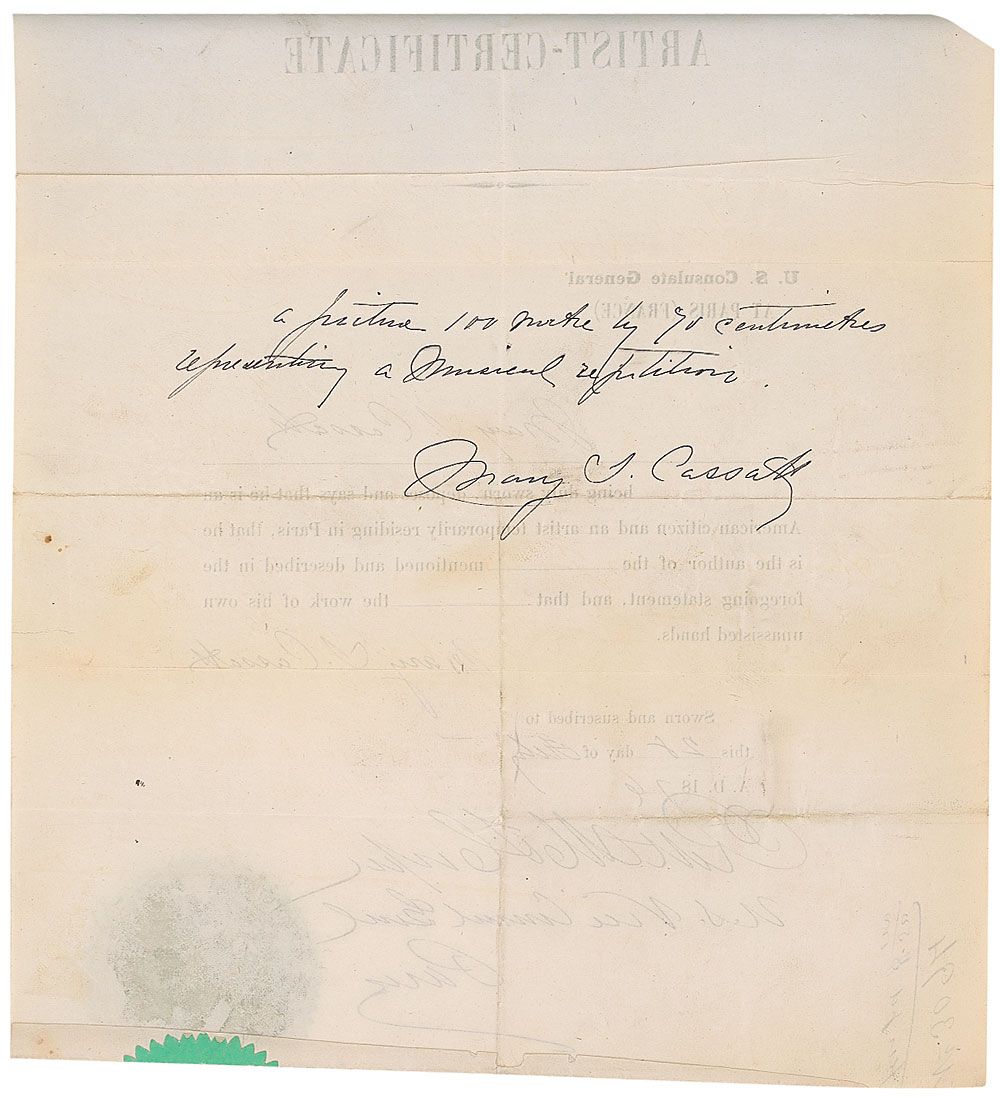 ARTIST-CERTIFICATE
U. S. Consulate General
AT PARIS (FRANCE)
a picture 100 metre by 90 centimetres
representing a Musical repetition.
Mary S. Cassatt
Mary S. Cassatt
being duly sworn, deposes and says that he is an
American citizen and an artist temporarily residing in Paris, that he
is the author of the mentioned and described in the
foregoing statement, and that the work of his own
unassisted hands.
Mary S. Cassatt
Sworn and suscribed to
this 28 day of
A. D. 18
U.S. Vice Consul Genl
Paris